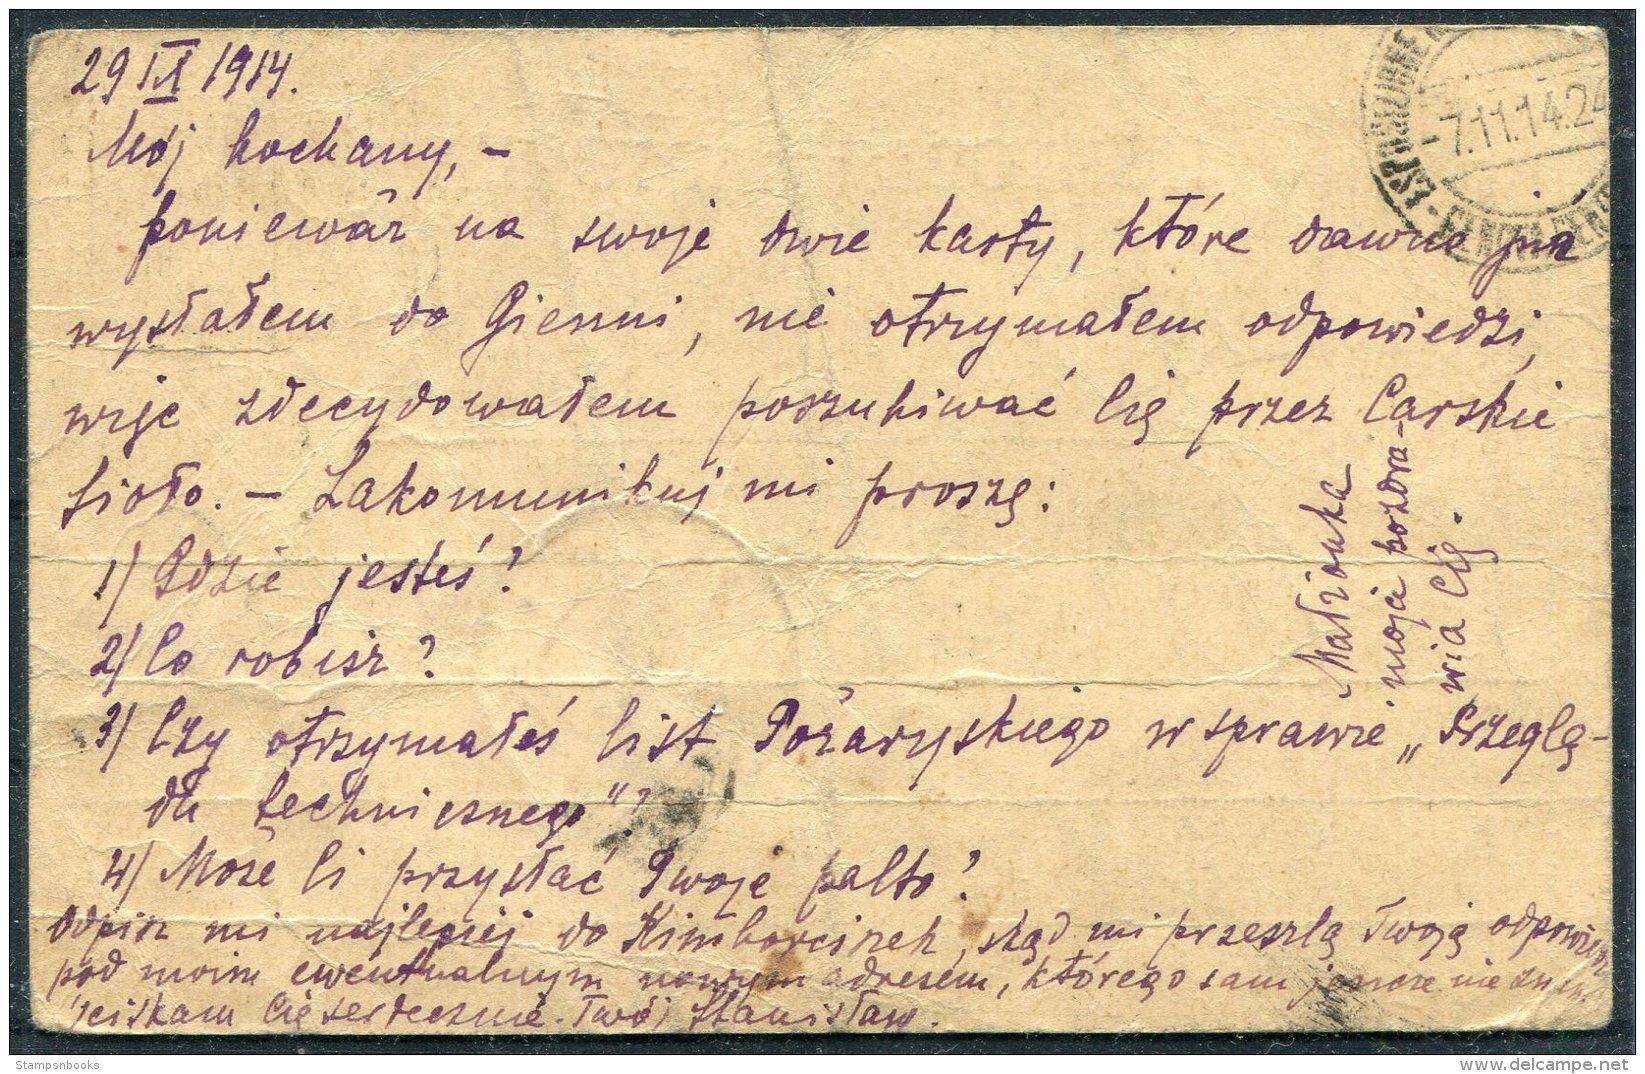 29 IX 1914.
Mój kochany, -
ponieważ na swoje dwie karty, które dawno już
wysłałem do Gienni, nie otrzymałem odpowiedzi,
więc zdecydowałem poszukiwać Cię przez Carskie
Sioło. - Zakomunikuj mi proszę:
1) Gdzie jesteś?
2) Co robisz?
3) Czy otrzymałeś list Pożaryskiego w sprawie „Przeglą-
du technicznego"?
4) Może Ci przysłać Twoje palto?
Odpisz mi najlepiej do, skąd mi przeszlą Twoją odpowiedź
pod moim ewentualnym nowym adresem, którego sam jeszcze nie znam.
Ściskam Cię serdecznie. Twój Stanisław.
Małżonka
moja pozdra-
wia Cię.
-7.11.14.24
Stampsnbooks
www.delcampe.net